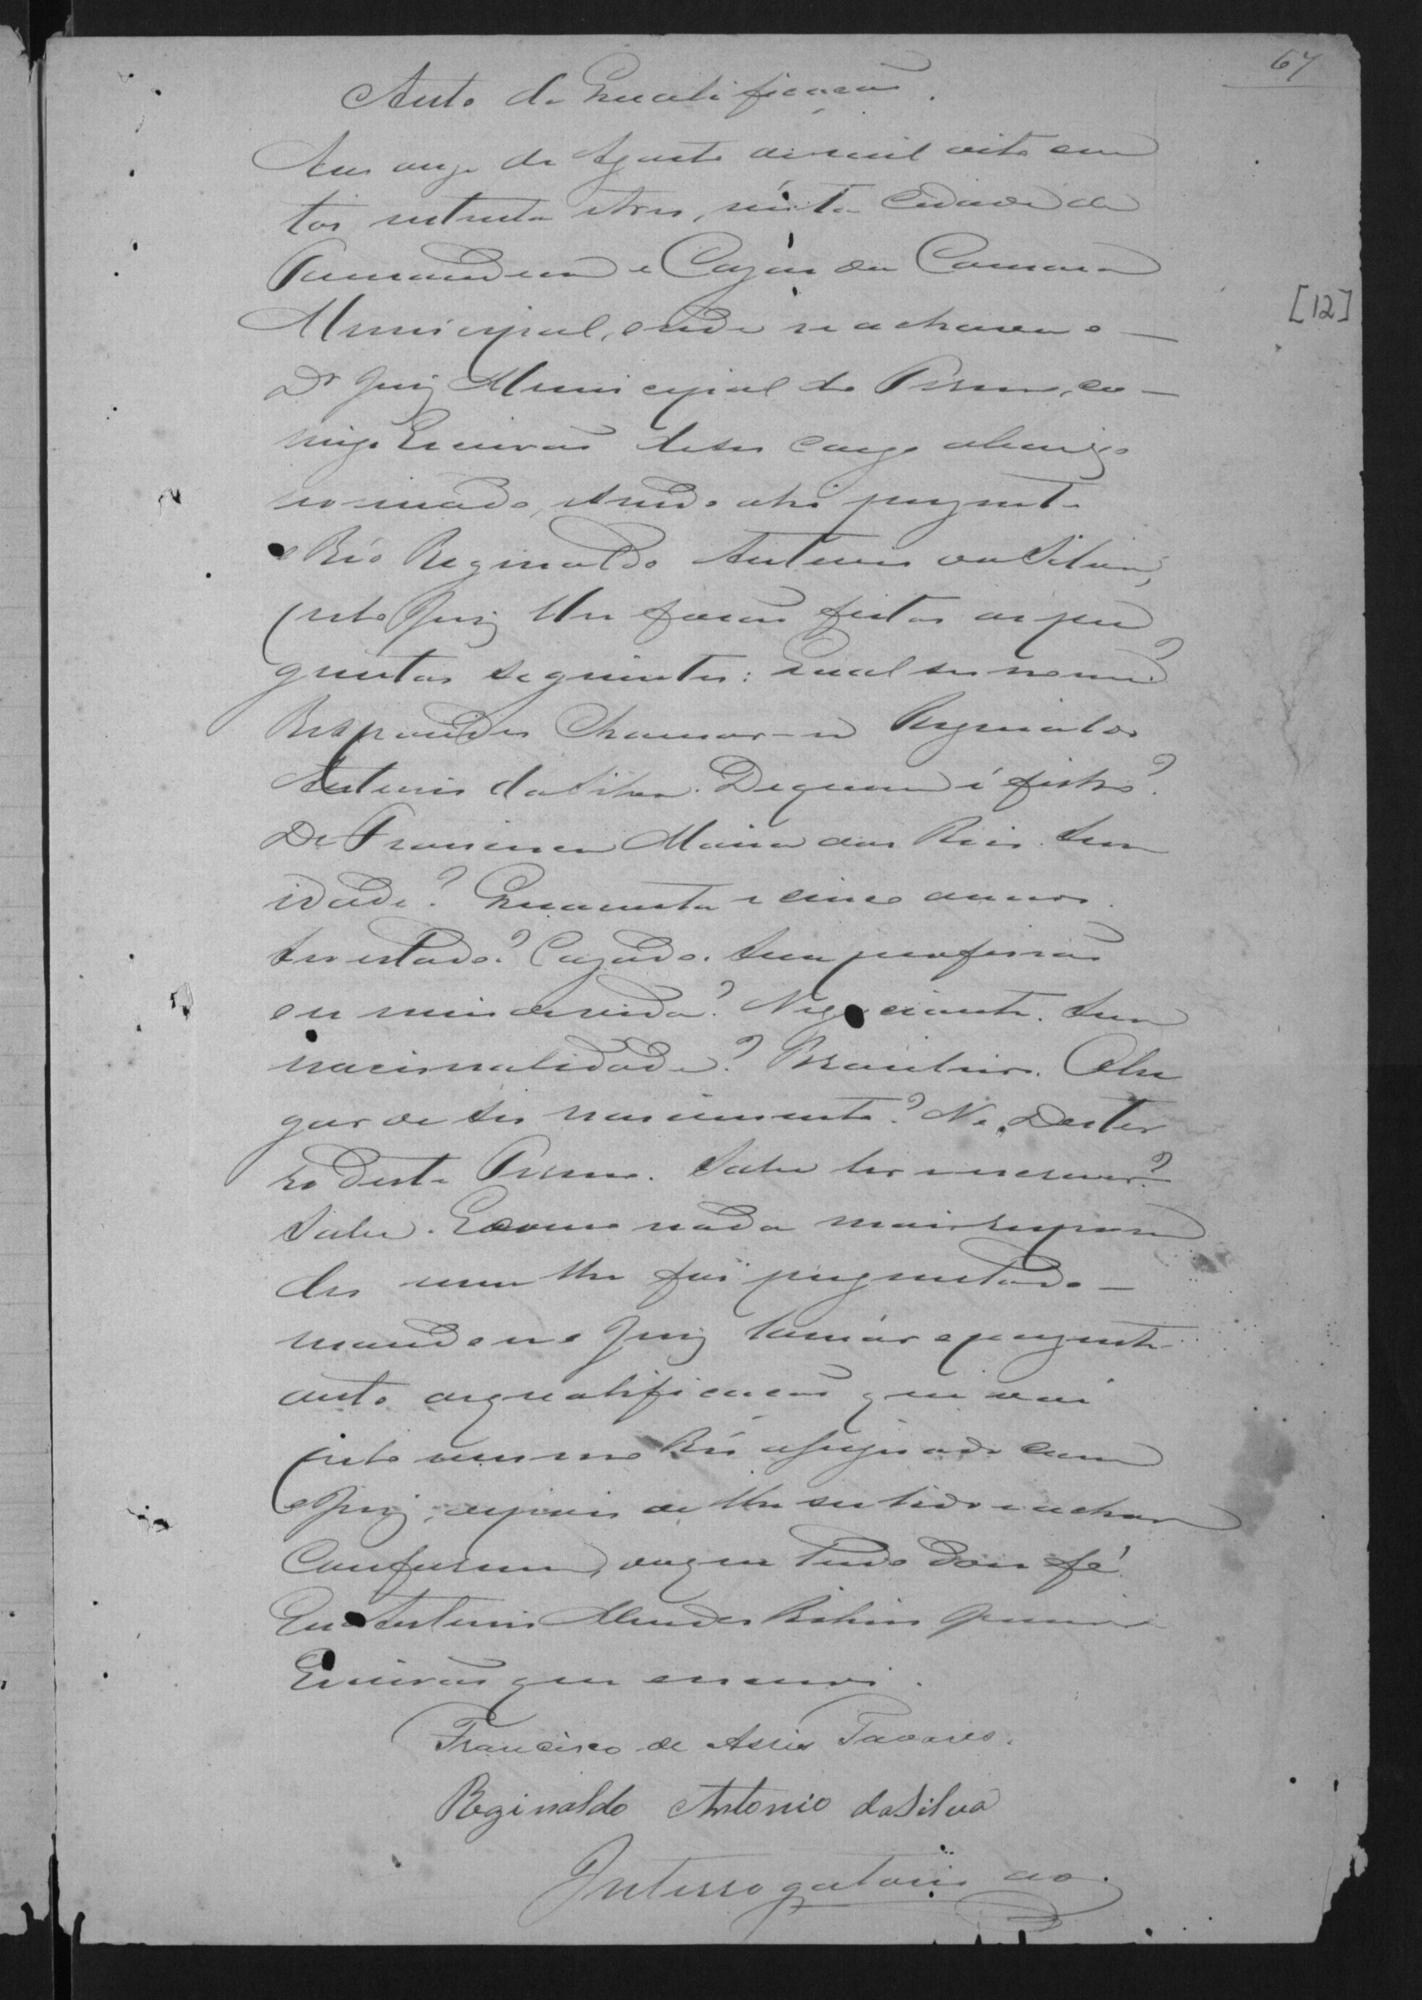 67
Auto de Qualificação.
Aos onze de Agosto de mil oito cen
tos setenta e tres, nésta Cidade de
Tamanduá e Cazas da Camara
Municipal, onde se achava o
Dr Juiz Municipal do Termo, co
migo Escrivão de seu cargo abaixo
nomiado, sendo ahi prezente
o Réo Reginaldo Antonio da Silva,
pelo Juiz lhe forão feitas as per
guntas seguintes: Qual seu nome?
Respondeu Chamar-se Reginaldo
Antonio da Silva. De quem é filho?
De Francisca Maria dos Reis. Sua
idade? Quarenta e cinco annos.
Seu estado? Cazado. Sua profissão
ou meio de vida? Negociante. Sua
nacionalidade? Brasileiro. O lu
gar de seu nascimento? No Dester
ro deste Termo. Sabe ler e escrever?
Sabe. E como nada mais respon
deu nem lhe foi perguntado
mandou o Juiz lavrár o prezente
auto de qualificação que vai
pelo mesmo Réo assignado com
o Juiz, depois de lhe ser lido e achar
Conforme, do que tudo dou fé.
Eu Antonio Mendes
Escrivão que escrevi.
Francisco de Assis Tavares.
Reginaldo Antonio da Silva
Interrogatorio ao
[12]